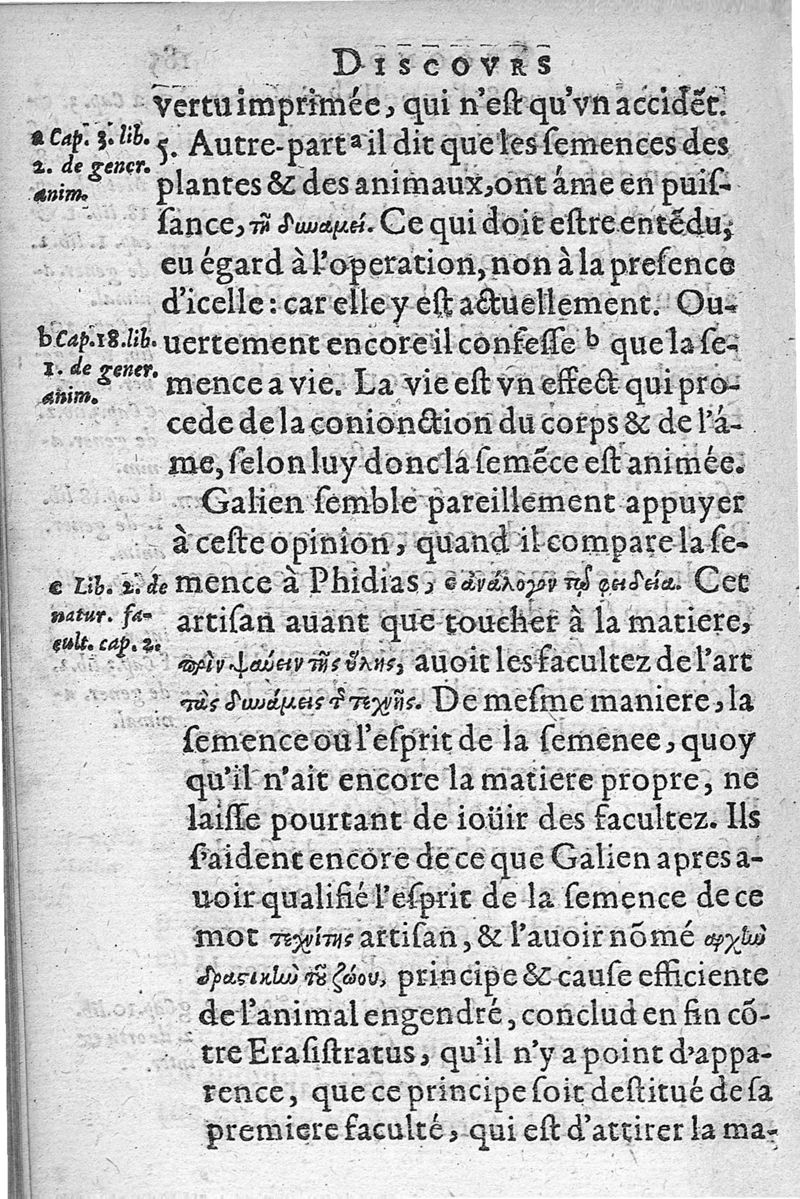 DISCOVRS
vertu imprimée, qui n'eſt qu'vn accidẽt.
a Cap. 3. lib.
2. de gener.
anim.
5. Autre-part ᵃ il dit que les ſemences des
plantes & des animaux, ont áme en puiſ-
ſance, τῇ δυναμεί. Ce qui doit eſtre entẽdu,
eu égard à l'operation, non à la preſence
d'icelle : car elle y eſt actuellement. Ou-
b Cap. 18. lib.
1. de gener.
anim.
uertement encore il confeſſe ᵇ que la ſe-
mence a vie. La vie eſt vn effect qui pro-
cede de la conionction du corps & de l'á-
me, ſelon luy donc la ſemẽce eſt animée.
Galien ſemble pareillement appuyer
à ceſte opinion, quand il compare la ſe-
c Lib. 2. de
natur. fa-
cult. cap. 2.
mence à Phidias, ᶜ ἀνάλογον τῷ φειδεία. Cet
artiſan auant que toucher à la matiere,
πρὶν ψαύειν τῆς ὕλης, auoit les facultez de l'art
τὰς δυνάμεις τ̃ τεχνῆς. De meſme maniere, la
ſemence ou l'eſprit de la ſemenee, quoy
qu'il n'ait encore la matiere propre, ne
laiſſe pourtant de ioüir des facultez. Ils
ſ'aident encore de ce que Galien apres a-
uoir qualifié l'eſprit de la ſemence de ce
mot τεχνίτης artiſan, & l'auoir nõmé αρχὴν
δραςικὴν τοῦ ζώου, principe & cauſe efficiente
de l'animal engendré, conclud en fin cõ-
tre Eraſiſtratus, qu'il n'y a point d'appa-
rence, que ce principe ſoit deſtitué de ſa
premiere faculté, qui eſt d'attirer la ma-